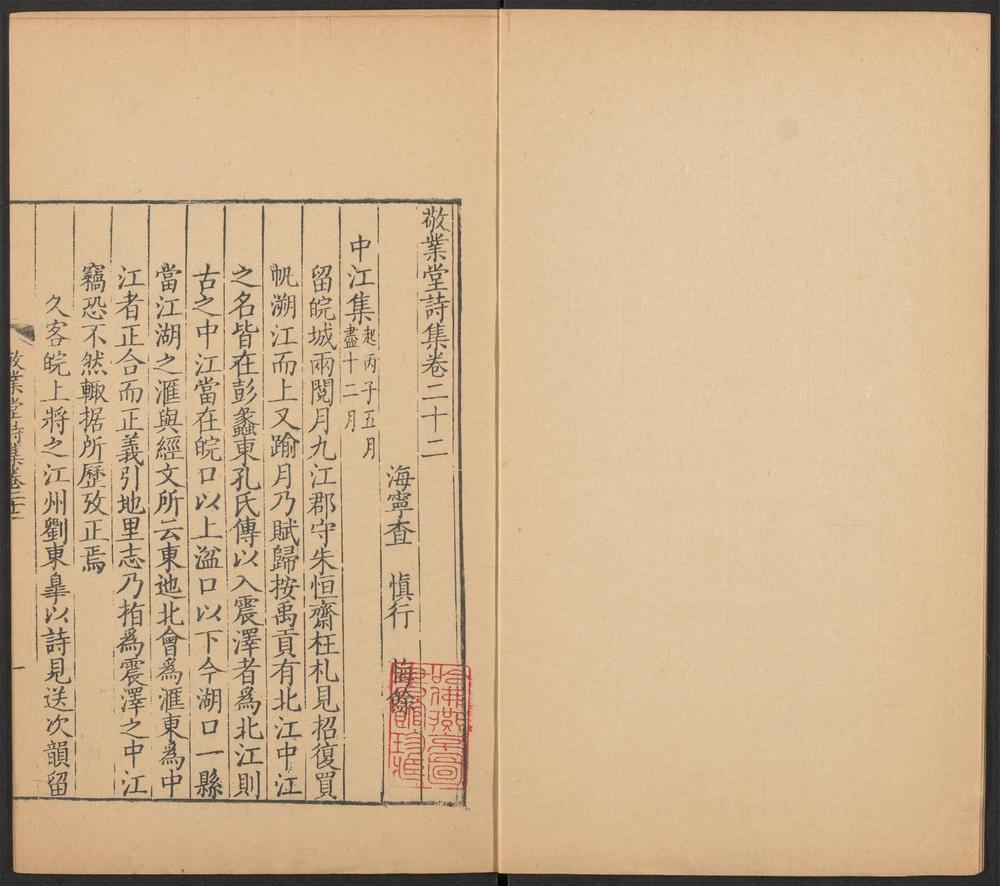 敬業堂詩集卷二十二
海寧查 慎行 悔餘
中江集起丙子五月
盡十二月
留皖城兩閱月九江郡守朱恒齋枉札見招復買
帆溯江而上又踰月乃賦歸按禹貢有北江中江
之名皆在彭蠡東孔氏傳以入震澤者爲北江則
古之中江當在皖口以上湓口以下今湖口一縣
當江湖之滙與經文所云東迆北會爲滙東爲中
江者正合而正義引地里志乃指爲震澤之中江
竊恐不然輙据所歷攷正焉
久客皖上將之江州劉東臯以詩見送次韻留
敬業堂詩集卷二十二
一